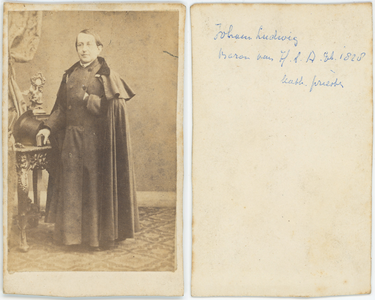 Johann Ludwig
Baron van H. t. A. Gb. 1828
Kath. priester